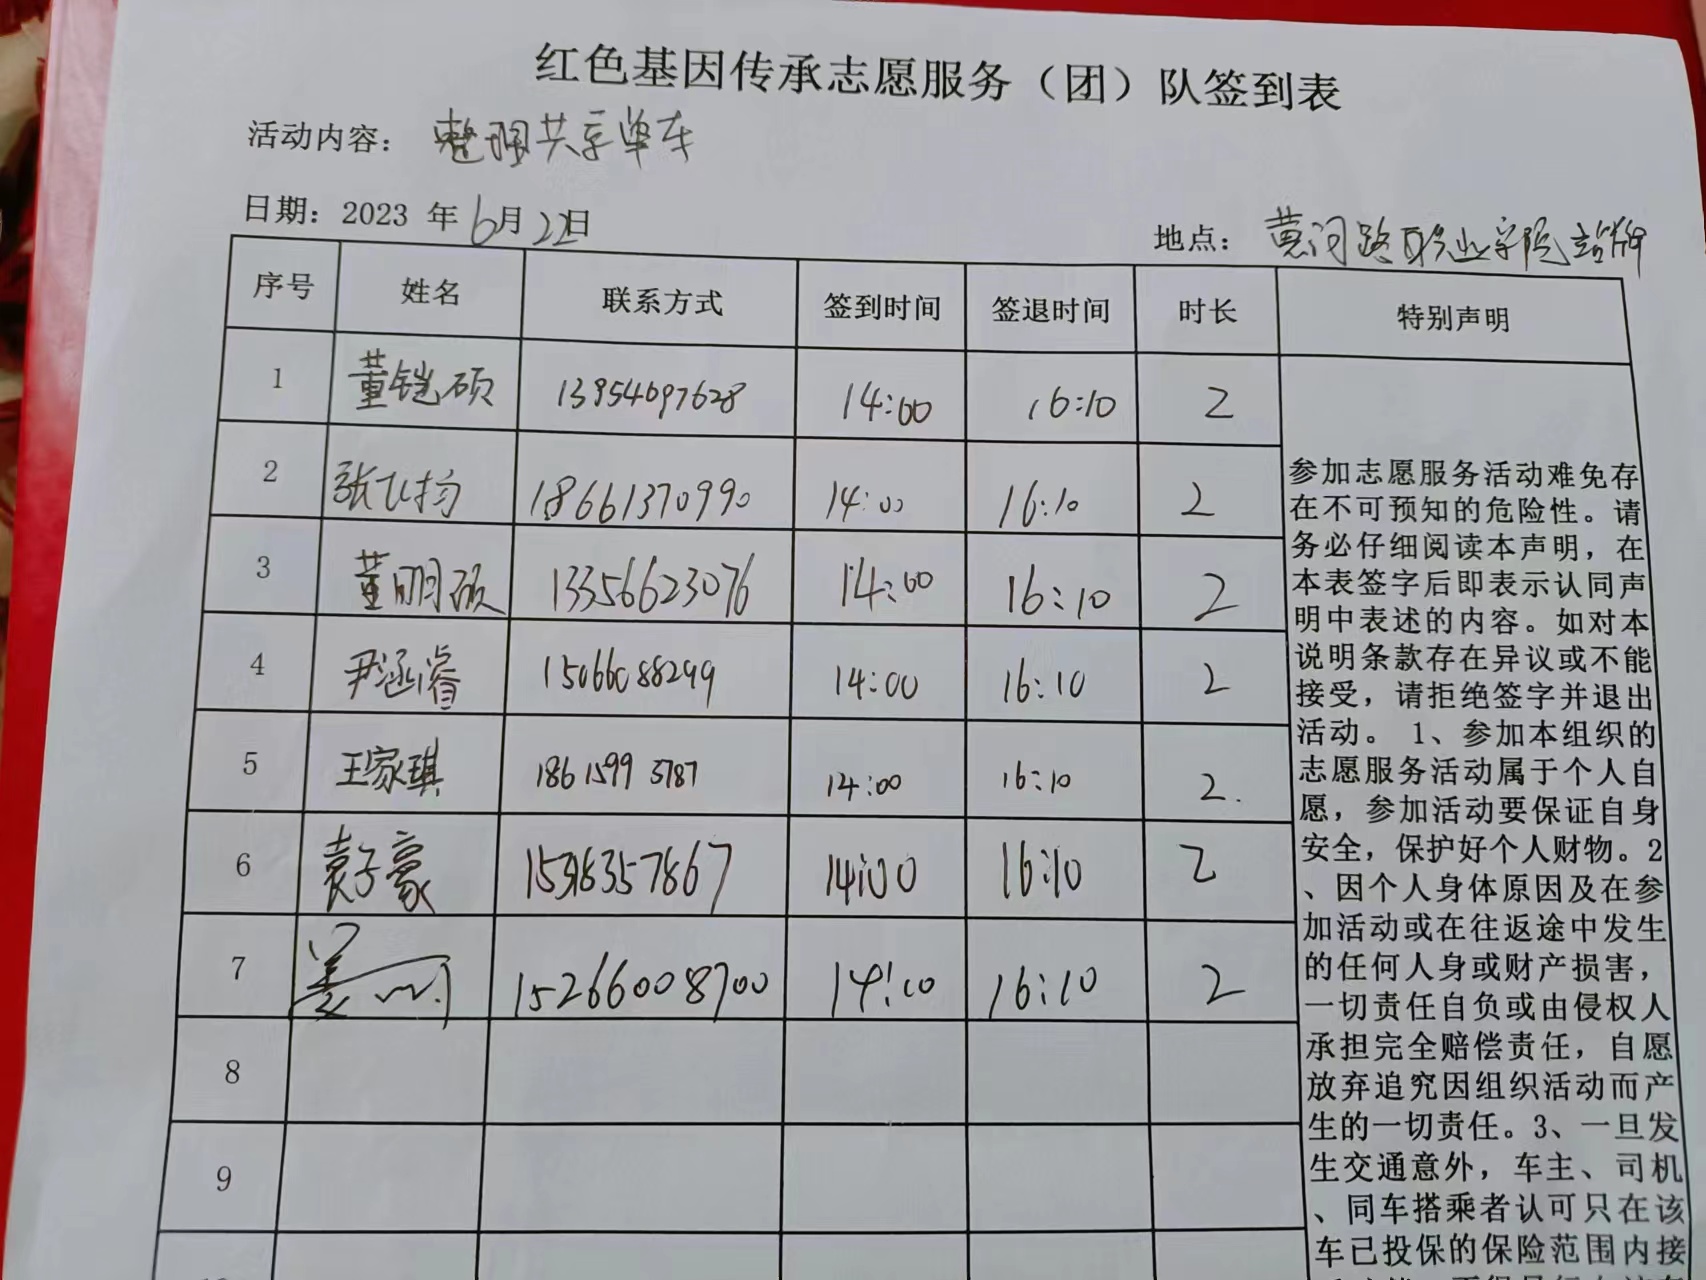 红色基因传承志愿服务（团）队签到表
活动内容： 整理共享单车
日期：2023 年 6月 22日 地点：黄河路职业学院站牌
序号 姓名 联系方式 签到时间 签退时间 时长 特别声明
1 董铠硕 13954697628 14:00 16:10 2
2 张飞扬 18661370990 14:00 16:10 2
3 董明硕 13356623076 14:00 16:10 2
4 尹涵睿 15066088299 14:00 16:10 2
5 王家琪 186 1599 3787 14:00 16:10 2.
6 袁子豪 14:00 16:10 2
7 姜 15266008700 14:00 16:10 2
8
9
参加志愿服务活动难免存
在不可预知的危险性。请
务必仔细阅读本声明，在
本表签字后即表示认同声
明中表述的内容。如对本
说明条款存在异议或不能
接受，请拒绝签字并退出
活动。 1、参加本组织的
志愿服务活动属于个人自
愿，参加活动要保证自身
安全，保护好个人财物。2
、因个人身体原因及在参
加活动或在往返途中发生
的任何人身或财产损害，
一切责任自负或由侵权人
承担完全赔偿责任，自愿
放弃追究因组织活动而产
生的一切责任。3、一旦发
生交通意外，车主、司机
、同车搭乘者认可只在该
车已投保的保险范围内接